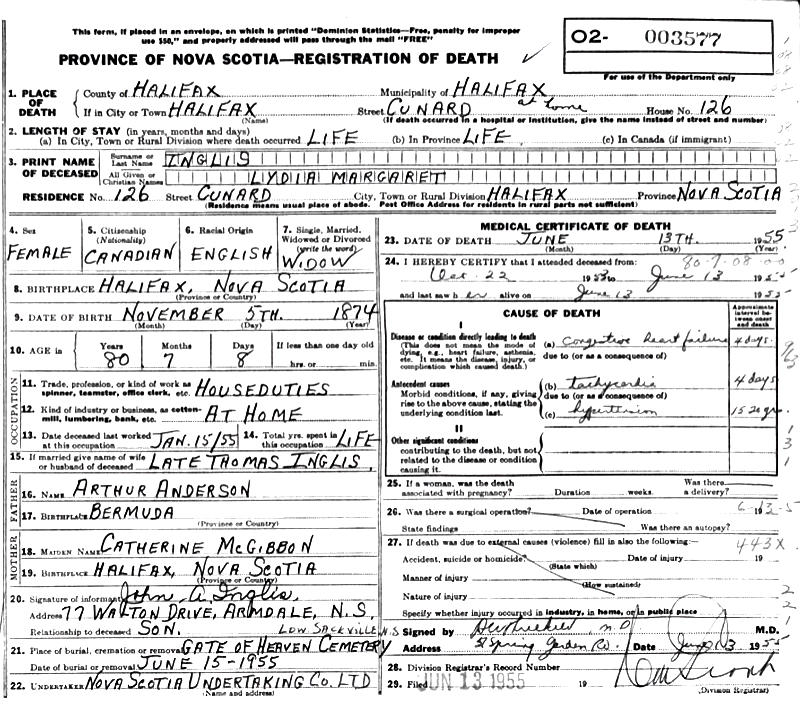 This form, if placed in an envelope, on which is printed "Dominion Statistics—Free, penalty for improper
use $50," and properly addressed will pass through the mail "FREE"
PROVINCE OF NOVA SCOTIA—REGISTRATION OF DEATH ✓
02- 003577
For use of the Department only
1. PLACE OF DEATH
County of HALIFAX Municipality of HALIFAX
If in City or Town HALIFAX Street CUNARD at home House No. 126
(Name) (If death occurred in a hospital or institution, give the name instead of street and number)
2. LENGTH OF STAY (in years, months and days)
(a) In City, Town or Rural Division where death occurred LIFE (b) In Province LIFE (c) In Canada (if immigrant)
3. PRINT NAME OF DECEASED
Surname or Last Name INGLIS
All Given or Christian Names LYDIA MARGARET
RESIDENCE No. 126 Street CUNARD City, Town or Rural Division HALIFAX Province NOVA SCOTIA
(Residence means usual place of abode. Post Office Address for residents in rural parts not sufficient)
4. Sex FEMALE
5. Citizenship (Nationality) CANADIAN
6. Racial Origin ENGLISH
7. Single, Married, Widowed or Divorced (write the word) WIDOW
8. BIRTHPLACE HALIFAX, NOVA SCOTIA
(Province or Country)
9. DATE OF BIRTH NOVEMBER 5TH. 1874
(Month) (Day) (Year)
10. AGE in Years 80 Months 7 Days 8 If less than one day old
hrs. or min.
OCCUPATION
11. Trade, profession, or kind of work as spinner, teamster, office clerk, etc. HOUSEDUTIES
12. Kind of industry or business, as cotton-mill, lumbering, bank, etc. AT HOME
13. Date deceased last worked at this occupation JAN. 15/55 14. Total yrs. spent in this occupation LIFE
15. If married give name of wife or husband of deceased LATE THOMAS INGLIS,
FATHER
16. NAME ARTHUR ANDERSON
17. BIRTHPLACE BERMUDA
(Province or Country)
MOTHER
18. MAIDEN NAME CATHERINE MCGIBBON
19. BIRTHPLACE HALIFAX, NOVA SCOTIA
(Province or Country)
20. Signature of informant John A. Inglis
Address 77 WALTON DRIVE, ARMDALE, N.S.
Relationship to deceased SON. LOW SACKVILLE N.S
21. Place of burial, cremation or removal GATE OF HEAVEN CEMETERY
Date of burial or removal JUNE 15-1955
22. UNDERTAKER NOVA SCOTIA UNDERTAKING CO. LTD
(Name and address)
MEDICAL CERTIFICATE OF DEATH
23. DATE OF DEATH JUNE 13TH. 1955
(Month) (Day) (Year)
80-7-08-00
24. I HEREBY CERTIFY that I attended deceased from:
Oct. 22 1953 to June 13 1955
and last saw her alive on June 13 1955
CAUSE OF DEATH
Approximate interval between onset and death
I
Disease or condition directly leading to death
(This does not mean the mode of dying, e.g., heart failure, asthenia, etc. It means the disease, injury, or complication which caused death.)
(a) Congestive heart failure 4 days
due to (or as a consequence of)
Antecedent causes
Morbid conditions, if any, giving rise to the above cause, stating the underlying condition last.
(b) tachycardia 4 days
due to (or as a consequence of)
(c) hypertension 15 20 yrs
II
Other significant conditions
contributing to the death, but not related to the disease or condition causing it.
25. If a woman, was the death associated with pregnancy? Duration weeks. Was there a delivery?
26. Was there a surgical operation? Date of operation 19
6-13-5
State findings Was there an autopsy?
27. If death was due to external causes (violence) fill in also the following:
443X
Accident, suicide or homicide? Date of injury 19
(State which)
Manner of injury
(How sustained)
Nature of injury
Specify whether injury occurred in industry, in home, or in public place
Signed by M.D.
Address Spring Garden Rd. Date June 13 1955
28. Division Registrar's Record Number
29. Filed JUN 13 1955 19
(Division Registrar)